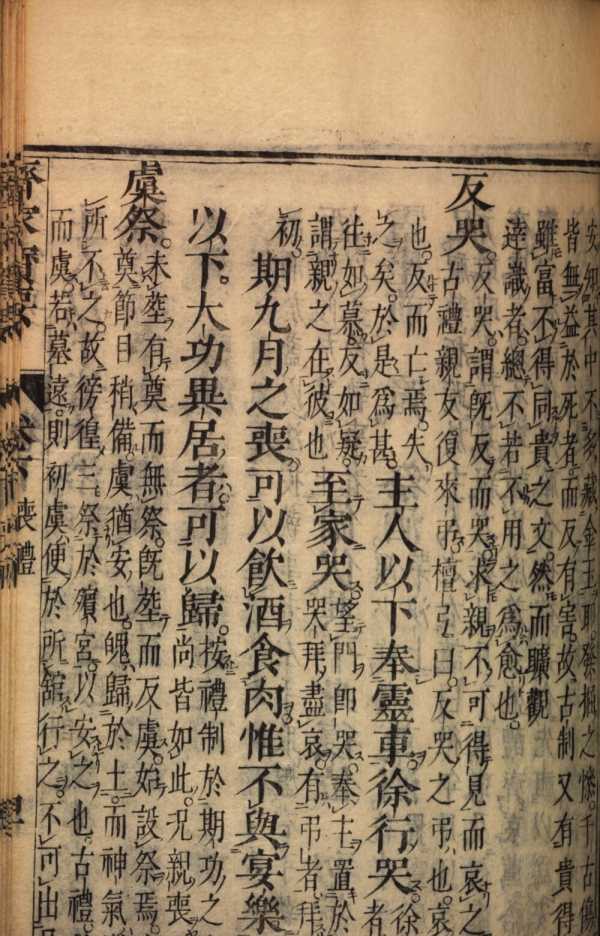 安知其中不多藏金玉耶發掘之慘千古傷
皆無益於死者而反有害故古制又有貴得
雖富不得同貴之文然而曠觀
達識者。總不若不用之爲愈也。
反哭。
反哭。謂既反而哭。求親不可得見而哀之
古禮親友復來弔。檀弓曰。反哭之弔也。哀
也。反而亡焉。失
之矣。於是爲甚。
主人以下奉靈車。徐行哭。
徐
者
往如慕。反如疑。
謂親之在彼也
至家哭。
望門即哭。奉主置於
哭拜盡哀。有弔者。拜
初。
期九月之喪。可以飲酒食肉。惟不與宴樂
以下。大功異居者。可以歸。
按禮制於期功之
尚皆如此。况親喪
虞祭。
未塟有奠而無祭。旣塟而反虞。始設祭焉。
奠節目稍備。虞猶安也。魄歸於土。而神氣
所不之。故徬徨三祭於殯宮。以安之也。古禮
而虞。若墓遠。則初虞便於所舘行之。不可出
喪禮